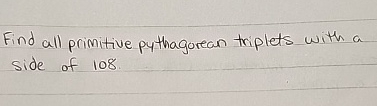 Find all primitive pythagorean triplets with a
side of 108.